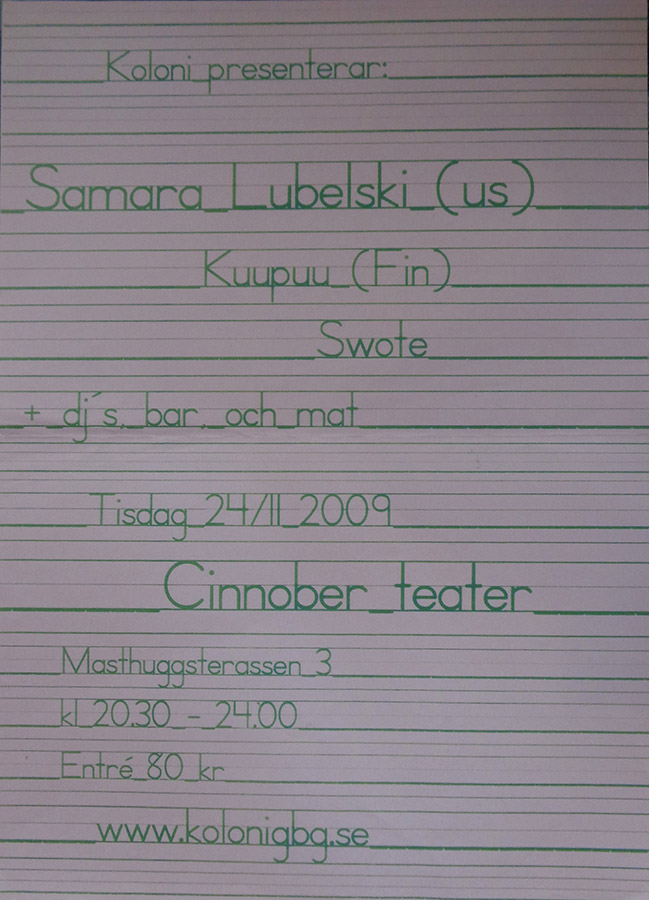 Koloni presenterar:
Samara Lubelski (us)
Kuupuu (Fin)
Swote
+ dj´s, bar, och mat
Tisdag 24/11 2009
Cinnober teater
Masthuggsterassen 3
kl 20.30 - 24.00
Entré 80 kr
www.kolonigbg.se